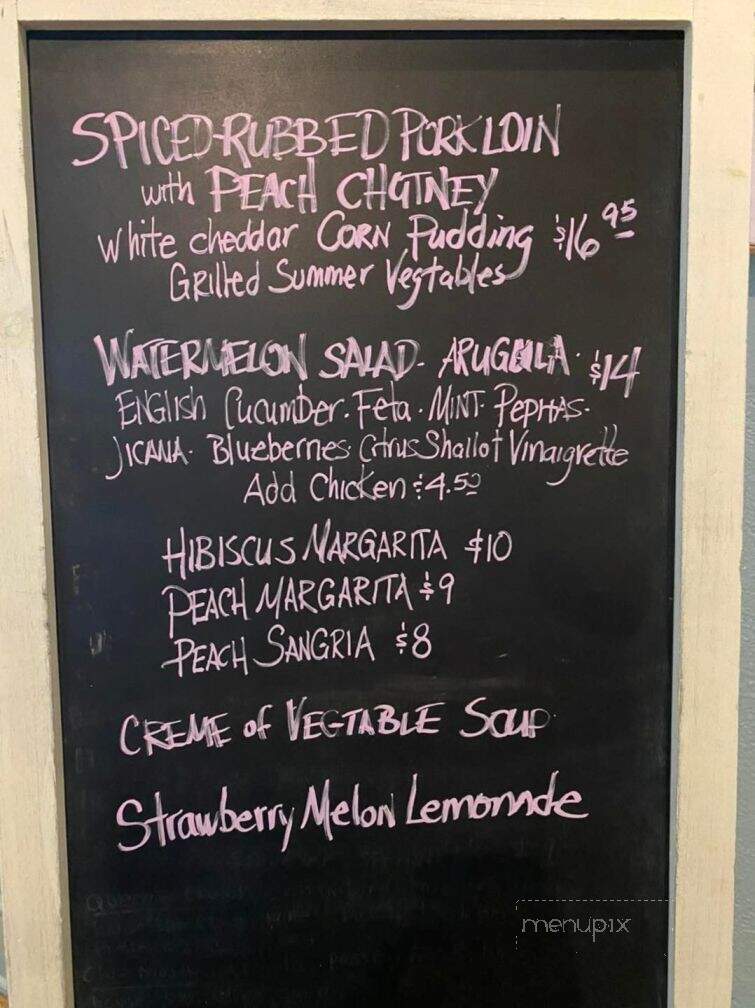 SPICED-RUBBED PORK LOIN
with PEACH CHUTNEY
White cheddar CORN Pudding $16 95
GRilled Summer Vegtables
WATERMELON SALAD - ARUGULA · $14
ENGLISH Cucumber · Feta · MINT · PEPITAS ·
JICAMA · Blueberries · Citrus Shallot Vinaigrette
Add Chicken $4.50
HIBISCUS MARGARITA $10
PEACH MARGARITA $9
PEACH SANGRIA $8
CREME of VEGTABLE SOUP
Strawberry Melon Lemonade
menupix